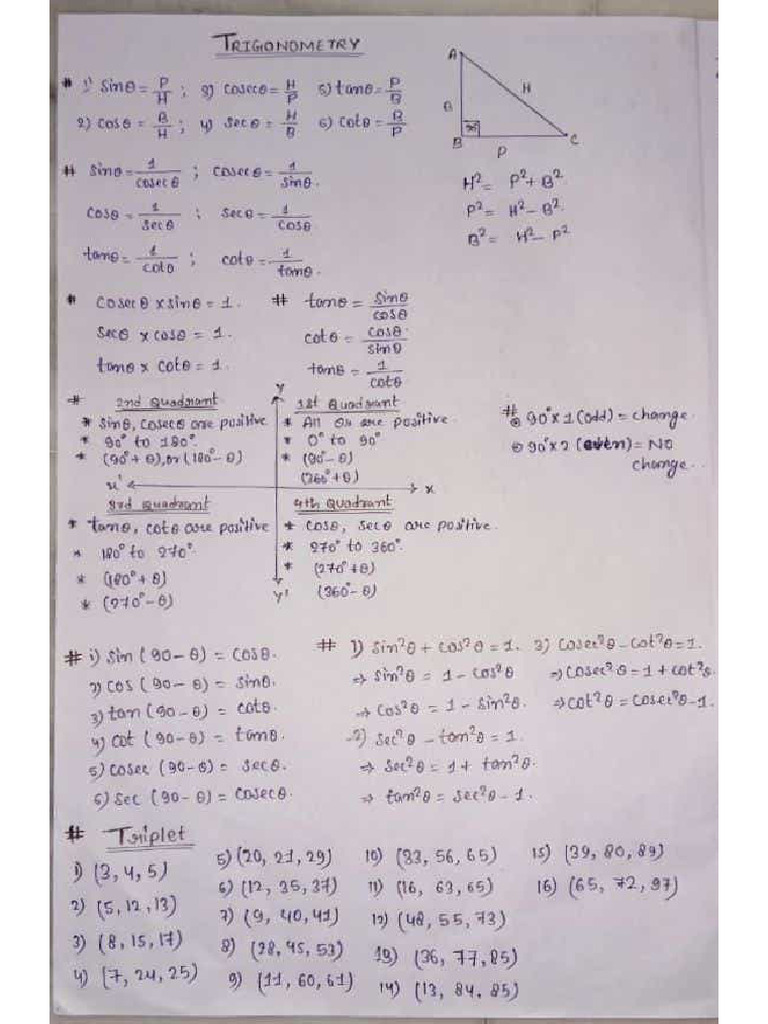 TRIGONOMETRY
# 1) sinθ = P/H ; 3) cosecθ = H/P 5) tanθ = P/B
2) cosθ = B/H ; 4) secθ = H/B 6) cotθ = B/P
A
B
H
90°
B
P
C
H² = P² + B²
P² = H² - B²
B² = H² - P²
# sinθ = 1/cosecθ ; cosecθ = 1/sinθ.
cosθ = 1/secθ ; secθ = 1/cosθ
tanθ = 1/cotθ ; cotθ = 1/tanθ.
* cosecθ × sinθ = 1.
secθ × cosθ = 1.
tanθ × cotθ = 1.
# tanθ = sinθ/cosθ
cotθ = cosθ/sinθ
tanθ = 1/cotθ
# 2nd Quadrant
* sinθ, cosecθ are positive.
* 90° to 180°.
* (90° + θ), or (180° - θ)
y
1st Quadrant
* All are positive.
* 0° to 90°
* (90° - θ)
(360° + θ)
x'
x
3rd Quadrant
* tanθ, cotθ are positive
* 180° to 270°.
* (180° + θ)
* (270° - θ)
4th Quadrant
* cosθ, secθ are positive.
* 270° to 360°.
* (270° + θ)
(360° - θ)
y'
# 90° × 1 (odd) = change.
90° × 2 (even) = NO
change..
# 1) sin (90 - θ) = cosθ.
2) cos (90 - θ) = sinθ.
3) tan (90 - θ) = cotθ
4) cot (90 - θ) = tanθ.
5) cosec (90 - θ) = secθ.
6) sec (90 - θ) = cosecθ.
# 1) sin²θ + cos²θ = 1.
⇒ sin²θ = 1 - cos²θ
⇒ cos²θ = 1 - sin²θ.
2) sec²θ - tan²θ = 1.
⇒ sec²θ = 1 + tan²θ.
⇒ tan²θ = sec²θ - 1.
3) cosec²θ - cot²θ = 1.
⇒ cosec²θ = 1 + cot²θ.
⇒ cot²θ = cosec²θ - 1.
# Triplet
1) (3, 4, 5)
2) (5, 12, 13)
3) (8, 15, 17)
4) (7, 24, 25)
5) (20, 21, 29)
6) (12, 35, 37)
7) (9, 40, 41)
8) (28, 45, 53)
9) (11, 60, 61)
10) (33, 56, 65)
11) (16, 63, 65)
12) (48, 55, 73)
13) (36, 77, 85)
14) (13, 84, 85)
15) (39, 80, 89)
16) (65, 72, 97)